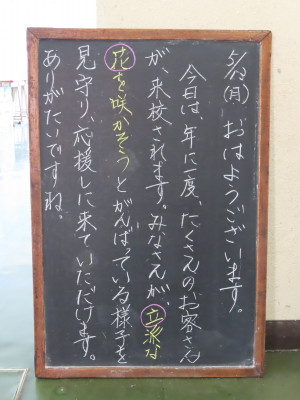 5/13(月) おはようございます。
今日は、年に一度、たくさんのお客さん
が、来校されます。みなさんが、立派な
花を咲かそうとがんばっている様子を
見守り、応援しに来ていただけます。
ありがたいですね。